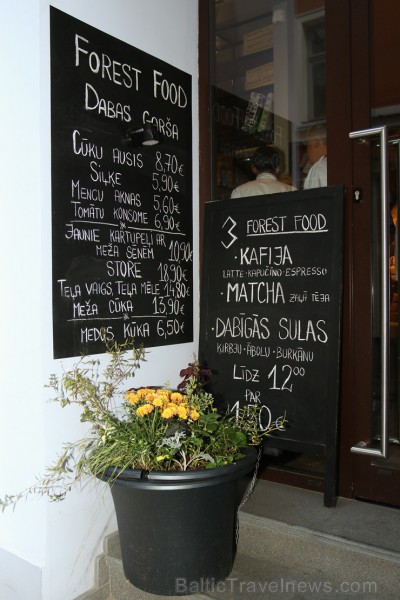 FOREST FOOD
DABAS GARŠA
CŪKU AUSIS 8,70 €
SIĻĶE 5,90 €
MENCU AKNAS 5,60 €
TOMĀTU KONSOME 6,90 €
JAUNIE KARTUPEĻI AR
MEŽA SĒNĒM 10,90 €
STORE 18,90 €
TEĻA VAIGS, TEĻA MĒLE 14,80 €
MEŽA CŪKA 13,90 €
MEDUS KŪKA 6,50 €
3 FOREST FOOD
· KAFIJA
LATTE · KAPUČĪNO · ESPRESSO
· MATCHA ZAĻĀ TĒJA
· DABĪGĀS SULAS
ĶIRBJU · ĀBOLU · BURKĀNU
LĪDZ 12 00
PAR
1,50 €
BalticTravelnews.com